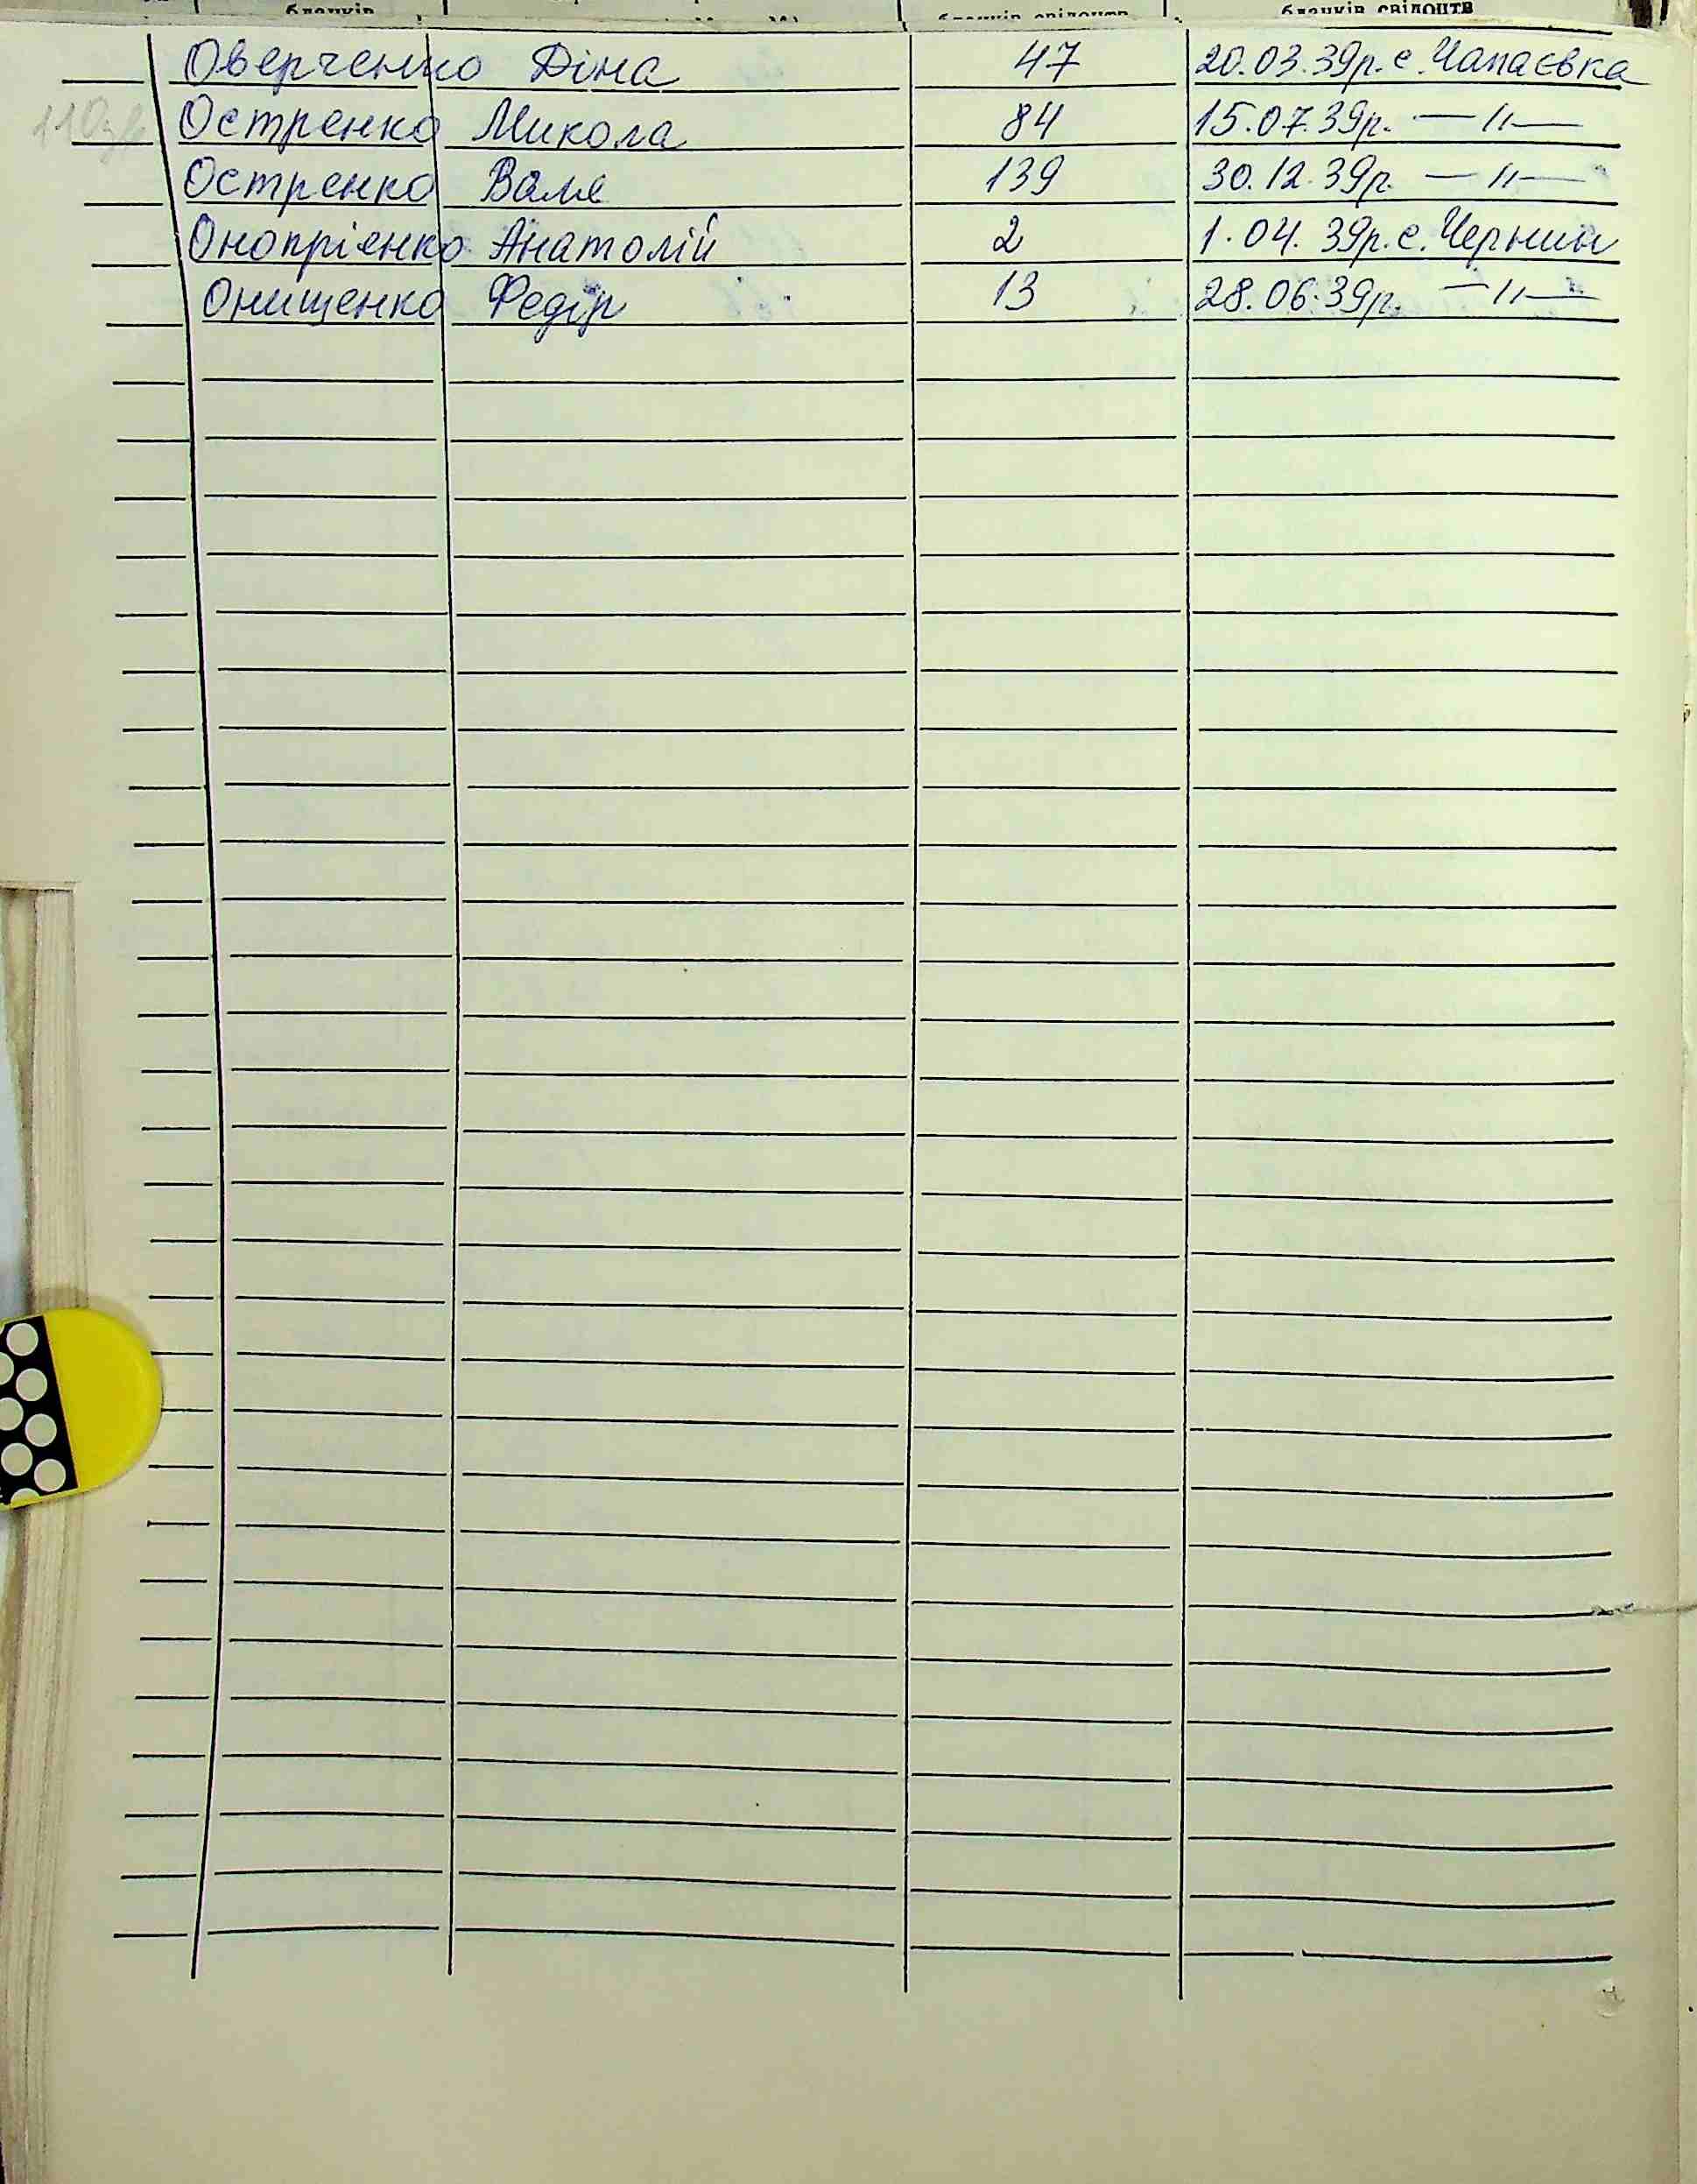 бланків
бланків свідоцтв
Оверченко Діна 47 20.03.39р. с. Чапаєвка
Остренко Микола 84 15.07.39р. —〃—
Остренко Валя 139 30.12.39р. —〃—
Онопрієнко Анатолій 2 1.04.39р. с. Чернин
Онищенко Федір 13 28.06.39р. —〃—